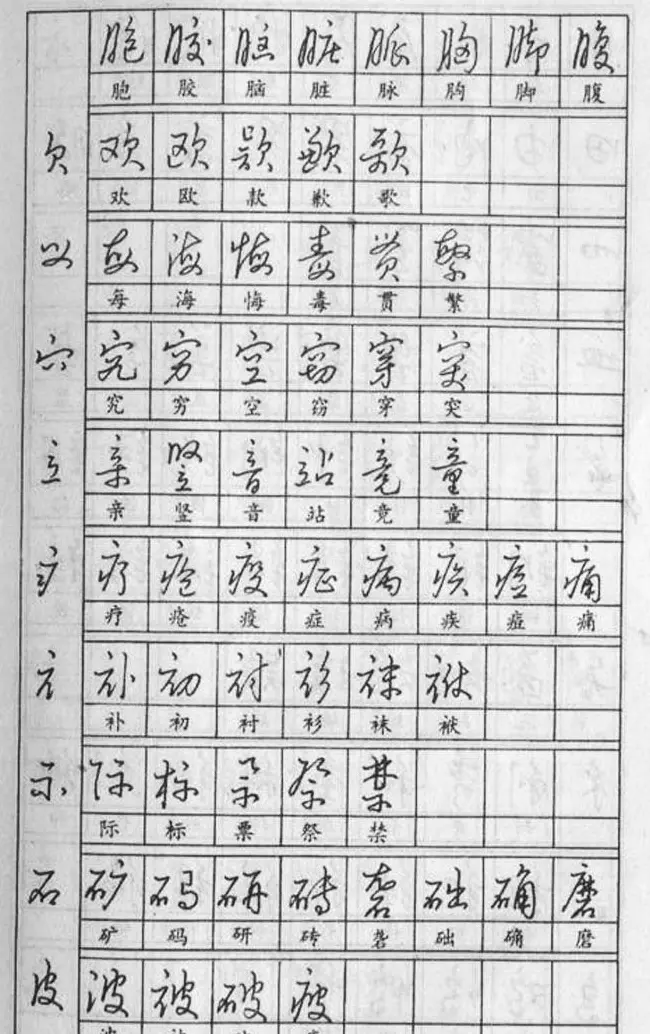 胞 胶 脑 脏 脉 胸 脚 腹
胞 胶 脑 脏 脉 胸 脚 腹
欠 欢 欧 款 歉 歌
欢 欧 款 歉 歌
每 海 悔 毒 贯 繁
每 海 悔 毒 贯 繁
穴 究 穷 空 窃 穿 突
究 穷 空 窃 穿 突
立 亲 竖 音 站 竞 童
亲 竖 音 站 竞 童
疒 疗 疮 疫 症 病 疾 痘 痛
疗 疮 疫 症 病 疾 痘 痛
衤 补 初 衬 衫 袜 袱
补 初 衬 衫 袜 袱
示 际 标 票 祭 禁
际 标 票 祭 禁
石 矿 码 研 砖 砻 础 确 磨
矿 码 研 砖 砻 础 确 磨
皮 波 被 破 疲